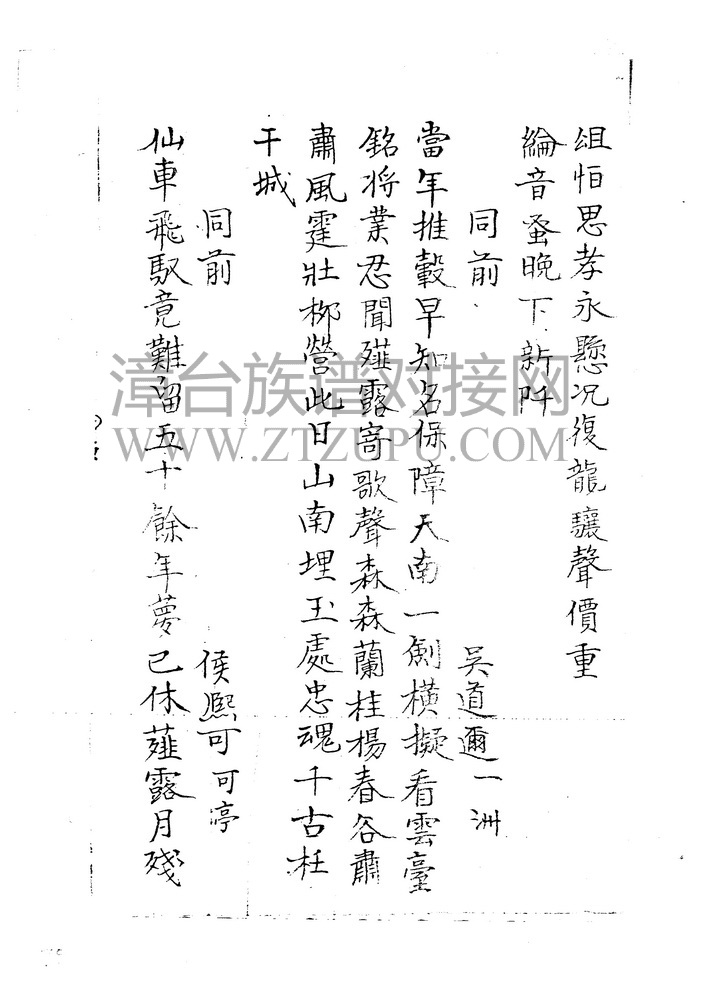 俎怕思孝永懸况復龍驤聲價重
綸音蚤晚下新阡
同前 吳道邇一洲
當年推轂早知名保障天南一劍橫擬看雲臺
銘將業忍聞薤露寄歌聲森森蘭桂楊春谷肅
肅風霆壯柳營此日山南埋玉處忠魂千古枉
干城
同前 侯熈可可渟
仙車飛馭竟難留五十餘年夢已休薤露月殘
漳台族谱对接网
WWW.ZTZUPU.COM